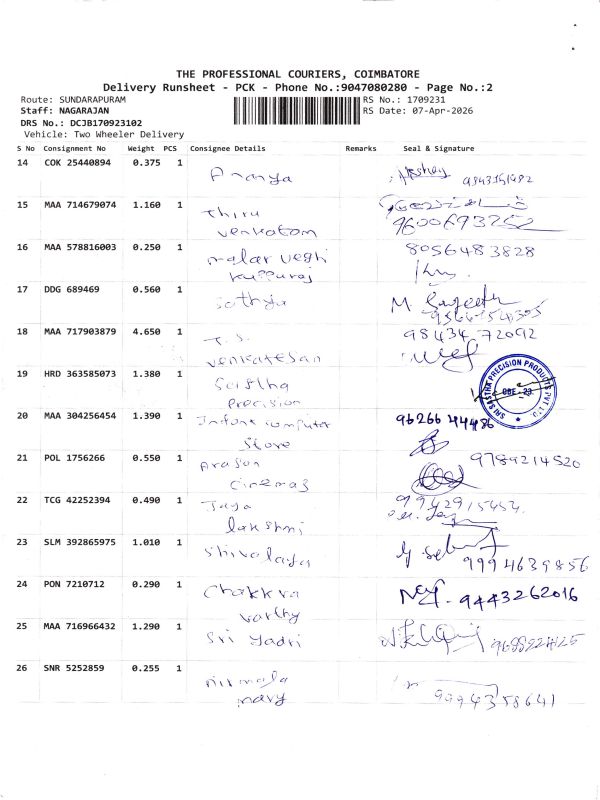 THE PROFESSIONAL COURIERS, COIMBATORE
Delivery Runsheet - PCK - Phone No.:9047080280 - Page No.:2
Route: SUNDARAPURAM RS No.: 1709231
Staff: NAGARAJAN RS Date: 07-Apr-2026
DRS No.: DCJB170923102
Vehicle: Two Wheeler Delivery
S No Consignment No Weight PCS Consignee Details Remarks Seal & Signature
14 COK 25440894 0.375 1
Ananya
15 MAA 714679074 1.160 1
Thiru
venkatom
16 MAA 578816003 0.250 1 8056483828
malar veghi
kuppuraj
17 DDG 689469 0.560 1
Sathya M.
18 MAA 717903879 4.650 1 98434 72092
T.S.
venkatesan
19 HRD 363585073 1.380 1
precision
SRI SASTRA PRECISION PRODUCTS PVT LTD.
CBE - 23
20 MAA 304256454 1.390 1
computer
store
21 POL 1756266 0.550 1 9789214520
cinemas
22 TCG 42252394 0.490 1
Jaya
lakshmi
23 SLM 392865975 1.010 1
Shivalaya 9994639856
24 PON 7210712 0.290 1
Chakkra 9443262016
varthy
25 MAA 716966432 1.290 1
Sri
26 SNR 5252859 0.255 1
nirmala 9994358641
mary